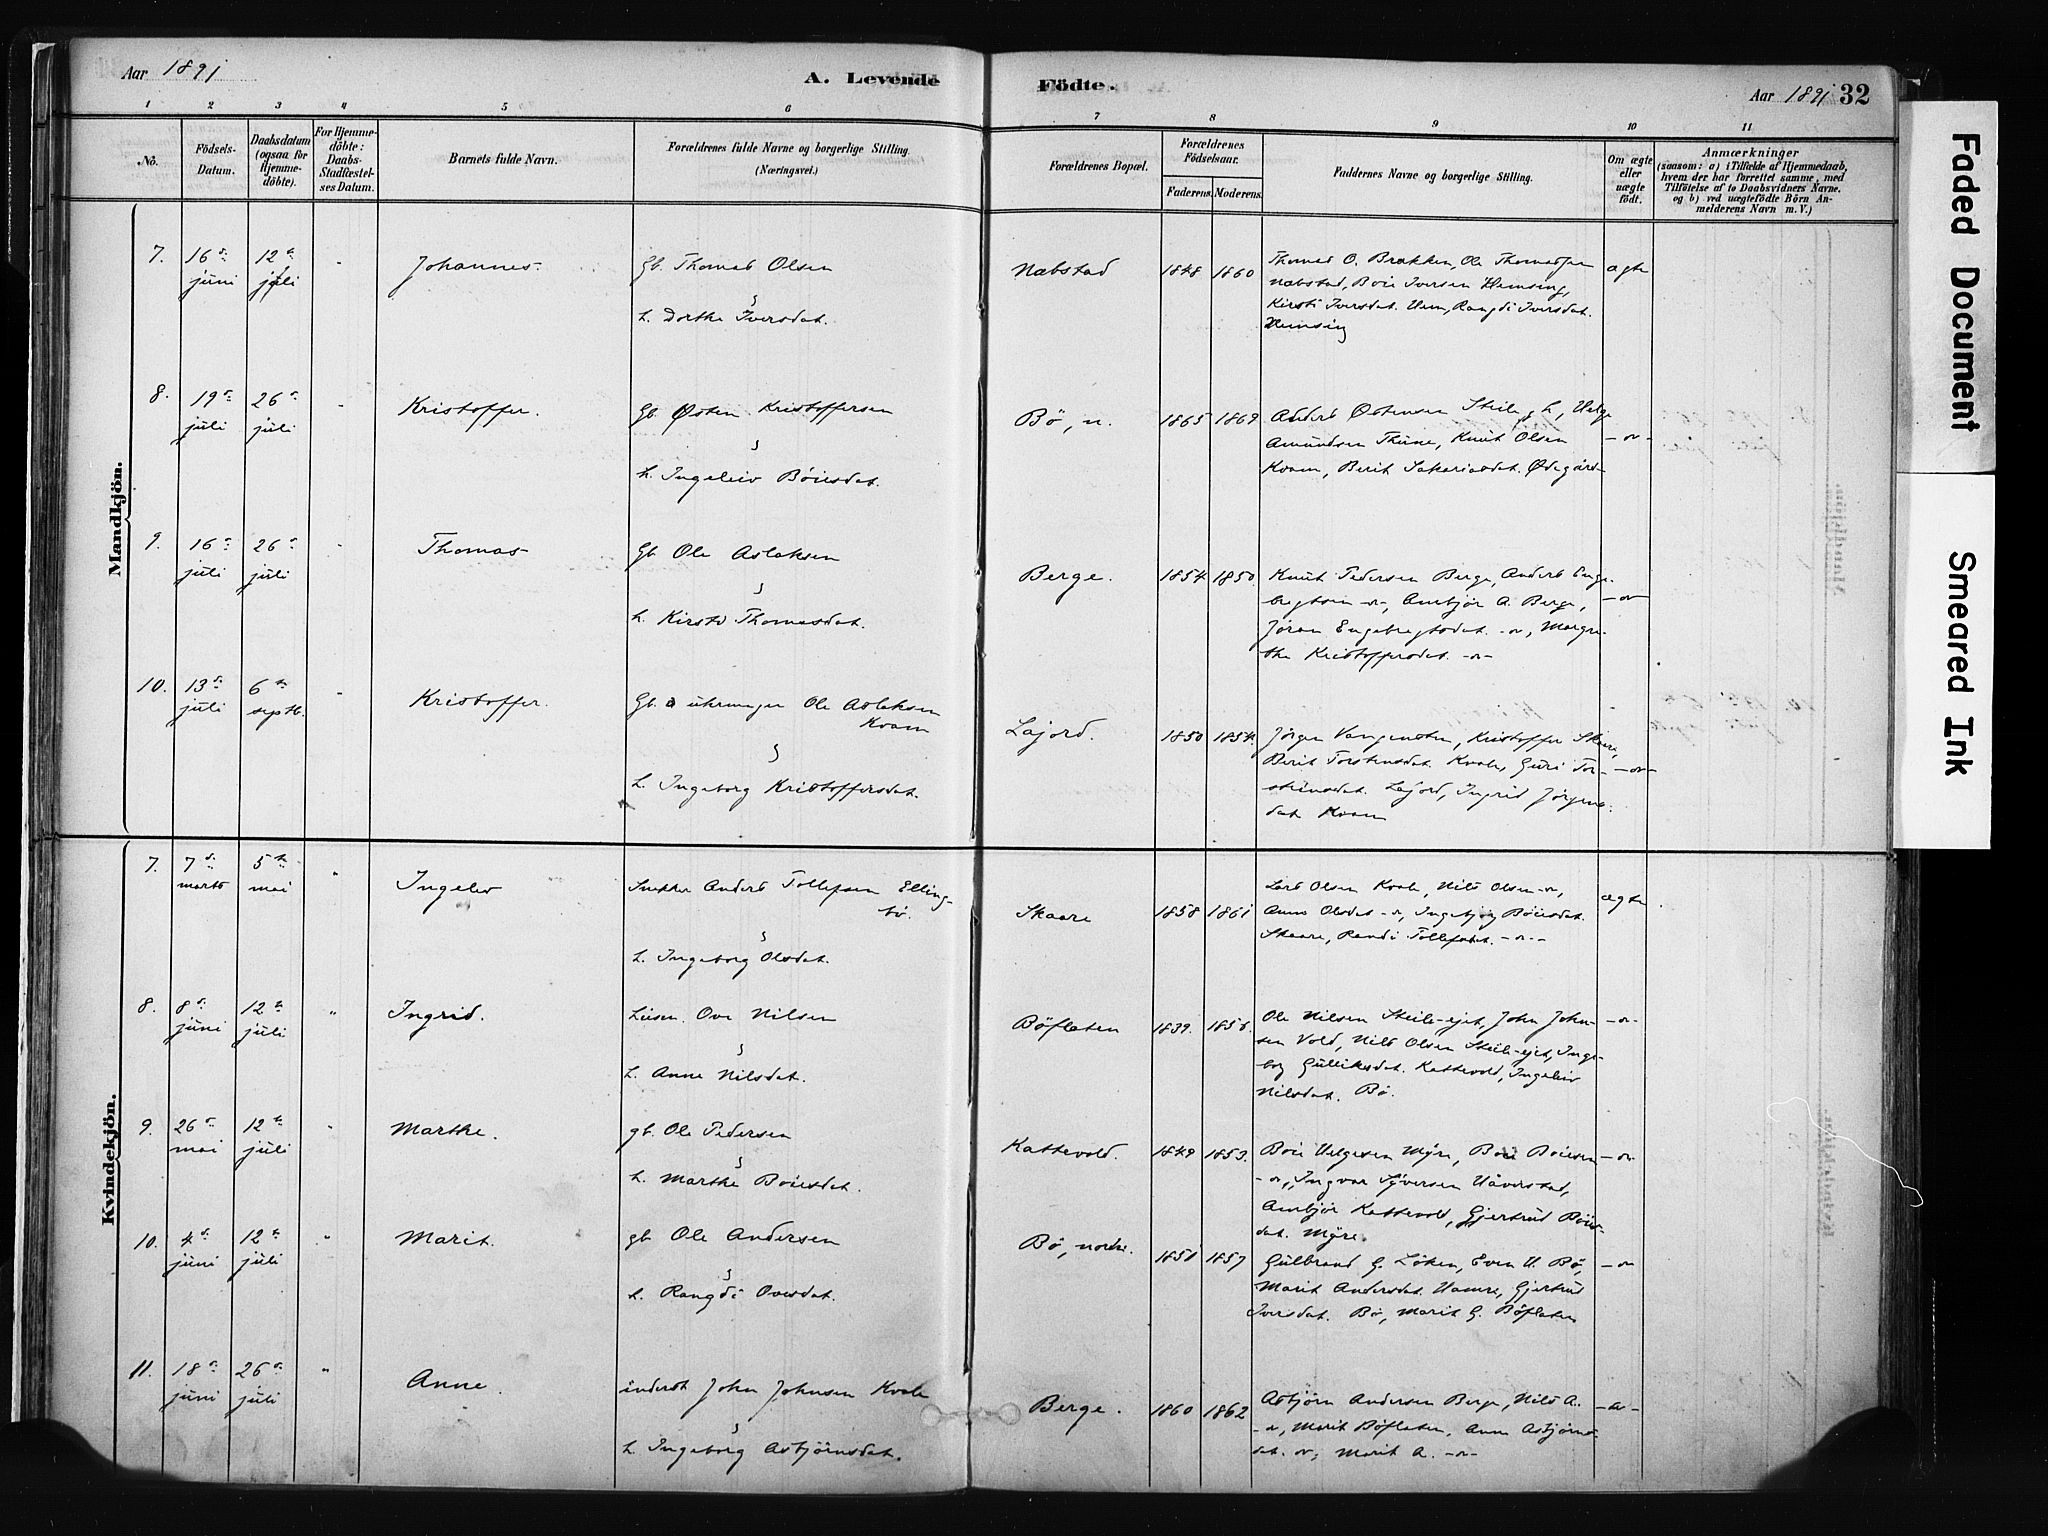 Aar 1891
A. Levende
Födte.
Aar 1891 32
1 2 3 4 5 6 7 8 9 10 11
No.
Födsels-
Datum.
Daabsdatum
(ogsaa for
Hjemme-
döbte).
For Hjemme-
döbte:
Daabs-
Stadfæstel-
ses Datum.
Barnets fulde Navn.
Forældrenes fulde Navne og borgerlige Stilling.
(Næringsvei.)
Forældrenes Bopæl.
Forældrenes
Födselsaar.
Faderens.
Moderens.
Faddernes Navne og borgerlige Stilling.
Om ægte
eller
uægte
födt.
Anmærkninger
(saasom: a) i Tilfælde af Hjemmedaab,
hvem der har forrettet samme, med
Tilföielse af to Daabsvidners Navne.
og b) ved uægtefödte Börn An-
melderens Navn m. V.)
Mandkjön.
7. 16 juni 12 juli Johannes. Gb. Thomas Olsen
h. Dorthe Iversdat.
Næbstad 1848 1860
Thomas O. Brækken, Ole Thomassen
Næbstad, Boie Iversen Hemsing,
Kirsti Iversdat. Hem, Rangdi Iversdat.
Hemsing
ægte
8. 19 juli 26 juli Kristoffer. Gb. Østen Kristoffersen
h. Ingeleiv Böiesdat.
Bö, n. 1865 1869
Anders Østensen Steile, gb, Helge
Amundsen Thune, Knut Olsen
Kvam, Berit Sakariasdat. Ødegård
-o-
9. 16 juli 26 juli Thomas Gb. Ole Aslaksen
h. Kirsti Thomasdat.
Berge. 1854 1850
Knut Pedersen Berge, Anders Enge-
bregtsen -o-, Ambjör A. Berge,
Jöran Engebregtsdat. -o-, Margre-
the Kristoffersdat. -o-
-o-
10. 13 juli 6 septb. Kristoffer. Gb. Ole Aslaksen
Kvam
h. Ingeborg Kristoffersdat.
Lajord. 1850 1854
Jörgen Vangensten, Kristoffer Skaare,
Berit Torstensdat. Kvale, Guri Tor-
steinsdat. Lajord, Ingrid Jörgens-
dat Kvam
-o-
Kvindekjön.
7. 7 marts 5 mai Ingelev Snekker Anders Tollefsen Elling-
bö.
h. Ingeborg Olsdat.
Skaare 1858 1861
Lars Olsen Kvale, Nils Olsen -o-,
Anne Olsdat -o-, Ingebjörg Böiesdat.
Skaare, Randi Tollefsdat. -o-
ægte
8. 8 juni 12 juli Ingrid. Leisen. Ove Nilsen
h. Anne Nilsdat.
Böflaten 1839. 1856.
Ole Nilsen Steile-ejet, John John-
sen Vold, Nils Olsen Steile-ejet, Inge-
borg Gulliksdat. Kattevold, Ingeleiv
Nilsdat. Bö.
-o-
9. 26 mai 12 juli Marthe. gb. Ole Pedersen
h. Marthe Boiesdat.
Kattevold. 1849 1853.
Boie Helgesen Myre, Boie Boiesen
-o-, Ingvar Syversen Håverstad,
Ambjör Kattevold, Gjertrud Böies-
dat. Myre
-o-
10. 4 juni 12 juli Marit. gb. Ole Andersen
h. Rangdi Ovesdat.
Bö, nordre. 1851 1857
Gulbrand G. Löken, Even H. Bö,
Marit Andersdat. Hamre, Gjertrud
Iversdat. Bö, Marit G. Böflaten
-o-
11. 18 juni 26 juli Anne. inderst John Johnsen Kvale
h. Ingeborg Asbjörnsdat.
Berge. 1860 1862
Asbjörn Andersen Berge, Nils A.
-o-, Marit Böflaten, Anne Asbjörns-
dat. -o-, Marit A. -o-
-o-
Faded Document
Smeared Ink